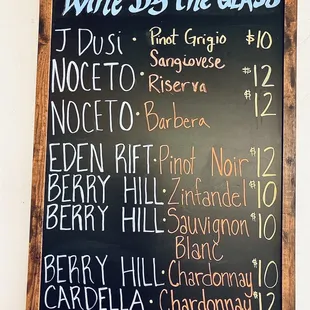 Wine By the GLASS
J Dusi · Pinot Grigio $10
Sangiovese
NOCETO · Riserva $12
NOCETO · Barbera $12
EDEN RIFT · Pinot Noir $12
BERRY HILL · Zinfandel $10
BERRY HILL · Sauvignon $10
Blanc
BERRY HILL · Chardonnay $10
CARDELLA · Chardonnay $12